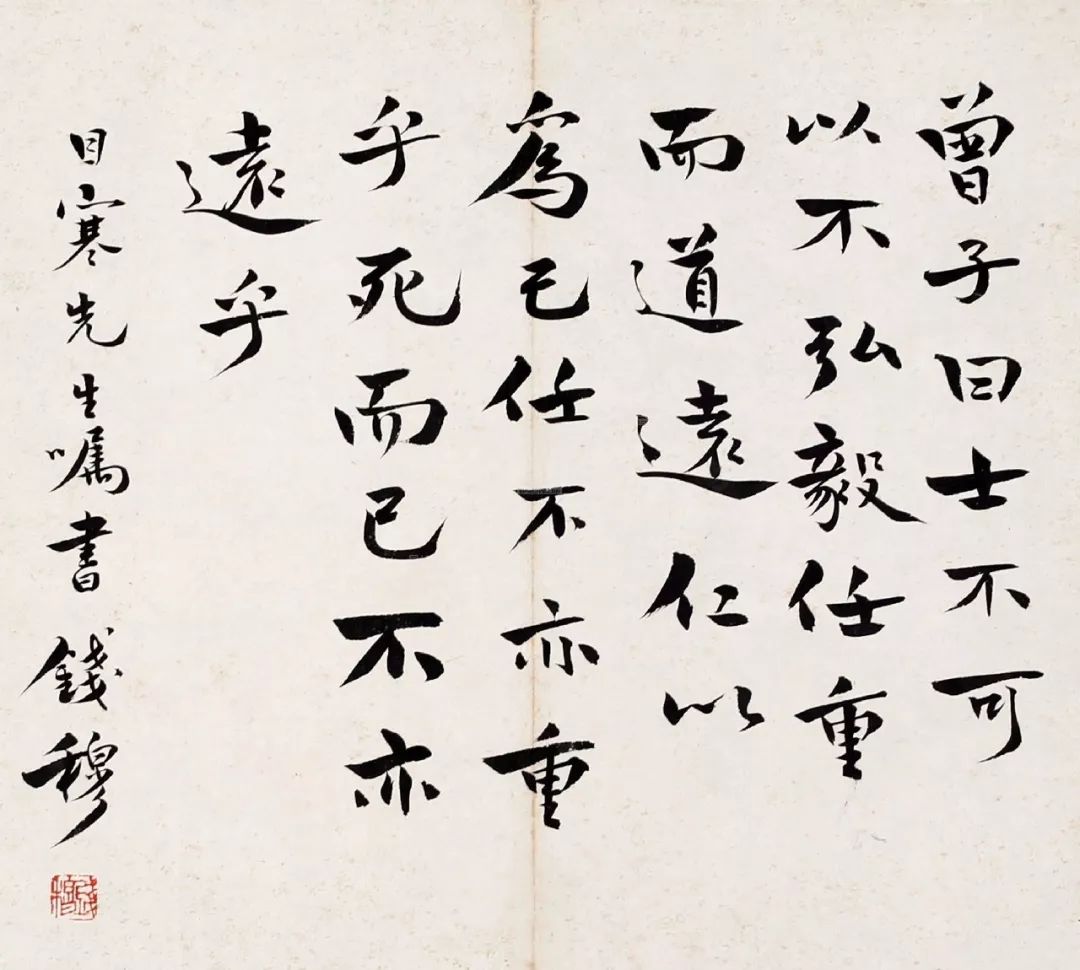 曾子曰士不可
以不弘毅任重
而道遠仁以
為己任不亦重
乎死而已不亦
遠乎
目寒先生囑書 錢穆
錢穆